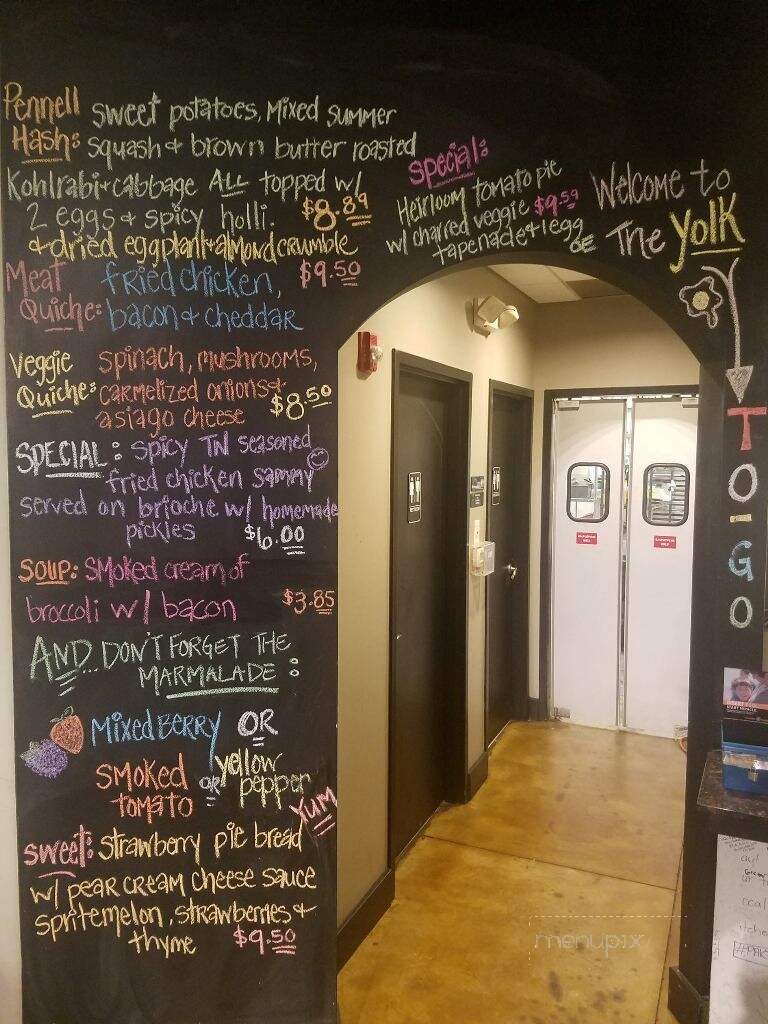 Pennell sweet potatoes, mixed summer
Hash: squash + brown butter roasted
Kohlrabi + cabbage ALL topped w/
2 eggs + spicy holli. $8.89
+ dried eggplant + almond crumble
Meat fried chicken, $9.50
Quiche: bacon + cheddar
Veggie spinach, mushrooms,
Quiche: carmelized onions +
asiago cheese $8.50
SPECIAL: spicy TN seasoned
fried chicken sammy
served on brioche w/ homemade
pickles $6.00
SOUP: smoked cream of
broccoli w/ bacon $3.85
AND... DON'T FORGET THE
MARMALADE:
MIXED BERRY OR
SMOKED TOMATO OR yellow pepper
YUM
sweet: strawberry pie bread
w/ pear cream cheese sauce
spritemelon, strawberries +
thyme $9.50
special:
Heirloom tomato pie
w/ charred veggie $9.59
tapenade + 1 egg OE
Welcome to
The Yolk
TO-GO
menupix